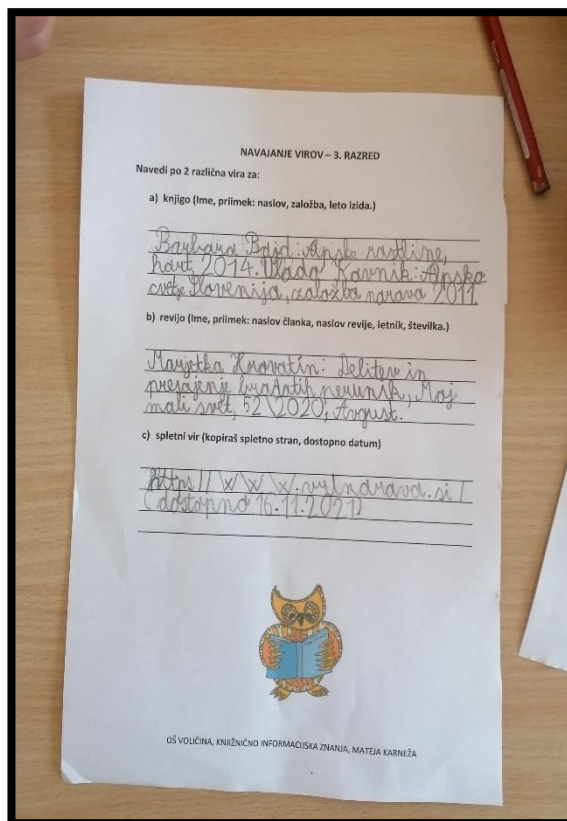 NAVAJANJE VIROV – 3. RAZRED
Navedi po 2 različna vira za:
a) knjigo (Ime, priimek: naslov, založba, leto izida.)
Barbara Bajd: Alpske rastline,
hart 2014. Vlado Ravnik: Alpsko
cvetje Slovenija, založba narava 2011
b) revijo (Ime, priimek: naslov članka, naslov revije, letnik, številka.)
Marjetka Hrovatin: Delitev in
presajenje bradatih perunik, Moj
mali svet, 52\2020, Avgust.
c) spletni vir (kopiraš spletno stran, dostopno datum)
https // www.
(dostopno 16.11.2021)
OŠ VOLIČINA, KNJIŽNIČNO INFORMACIJSKA ZNANJA, MATEJA KARNEŽA